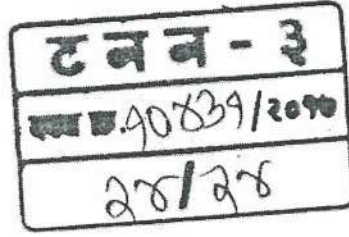 ट न न - ३
दस्त क्र. १०४३१/२०१७
२४/२४